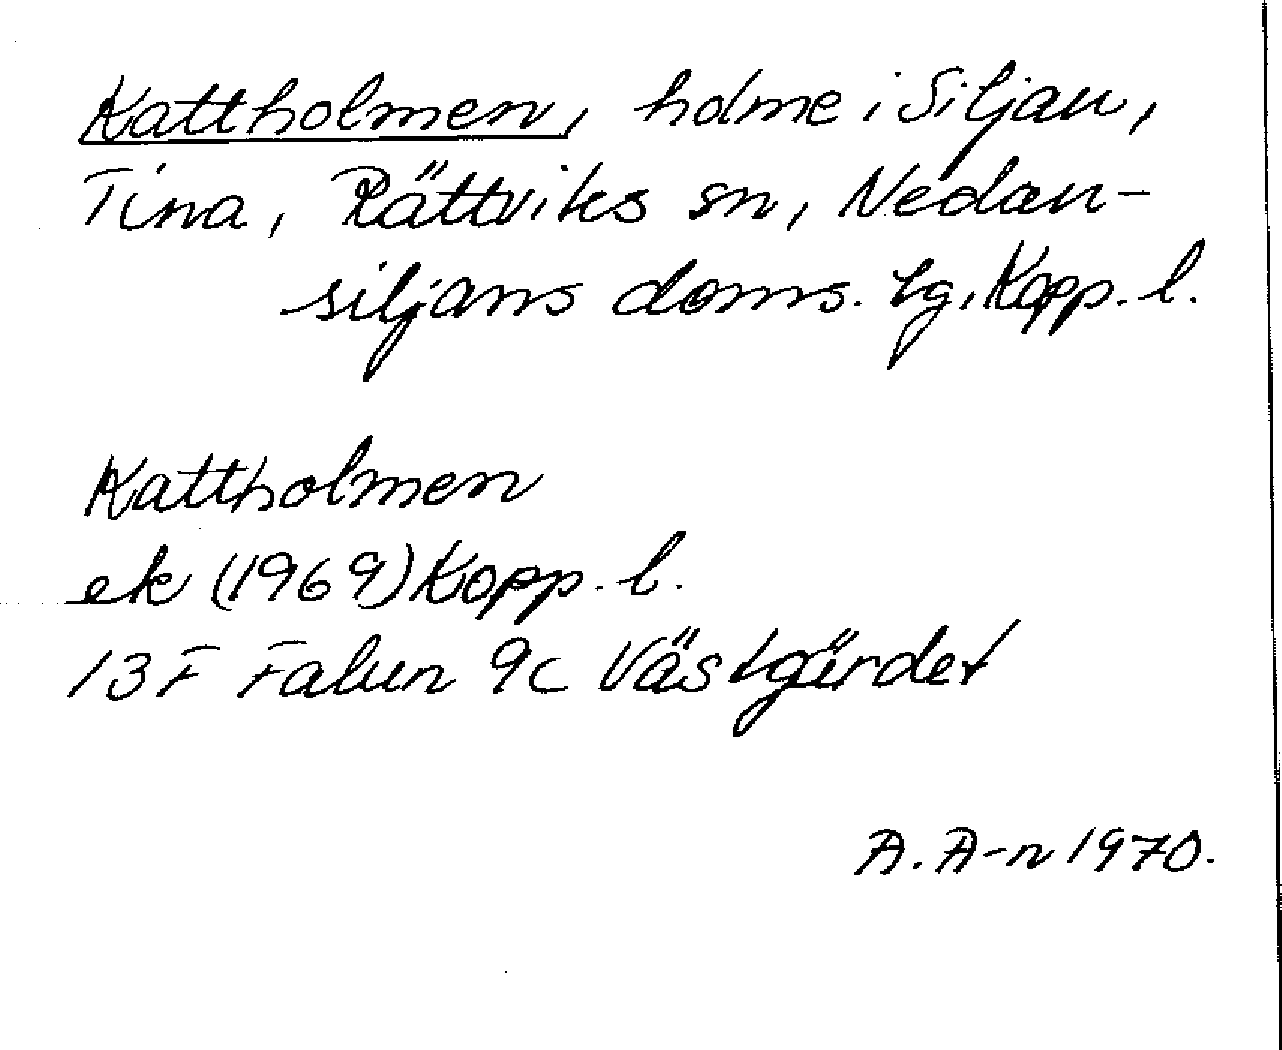 Kattholmen, holme i Siljan,
Tina, Rättviks sn, Nedan-
siljans doms. tg, Kopp. l.
Kattholmen
ek (1969) Kopp. l.
13F Falun 9c Västgärdet
A. A-n 1970.